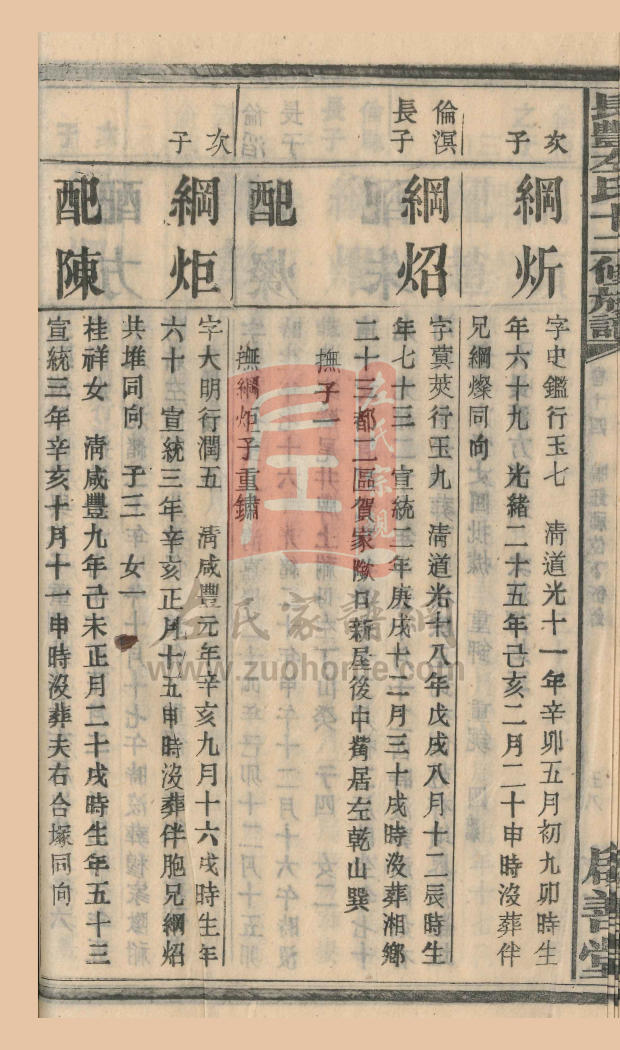 次子
綱炘
字史鑑行玉七 清道光十一年辛卯五月初九卯時生
年六十九 光緒二十五年己亥二月二十申時沒葬伴
兄綱燦同向
倫溟
長子
綱炤
字蓂莢行玉九 清道光十八年戊戌八月十二辰時生
年七十三 宣統二年庚戌十二月三十戌時沒葬湘鄉
二十三都二區賀家㘭日新屋後中葡居左乾山巽
配
撫子一
撫綱炬子重鏽
次子
綱炬
字大明行潤五 清咸豐元年辛亥九月十六戌時生年
六十 宣統三年辛亥正月十五申時沒葬伴胞兄綱炤
共堆同向 子三 女一
配陳
桂祥女 清咸豐九年己未正月二十戌時生年五十三
宣統三年辛亥十月十一申時沒葬夫右合塚同向
左氏家譜網
www.zuohome.com